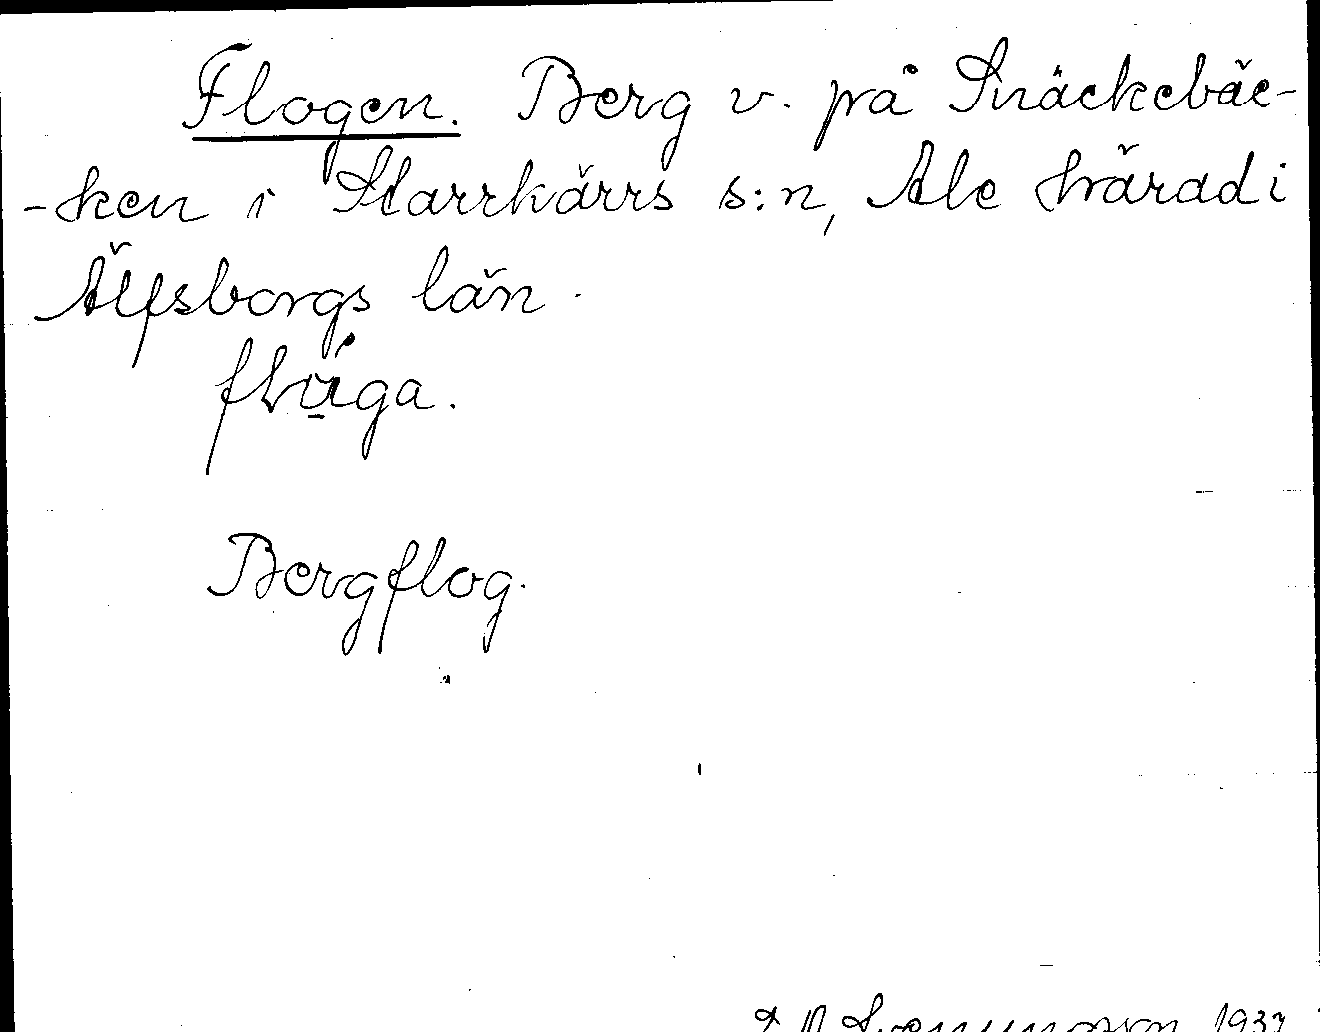 Flogen. Berg v. på Snäckebäc-
-ken i Starrkärrs s:n, Ale härad i
Älfsborgs län.
Bergflog.
1937